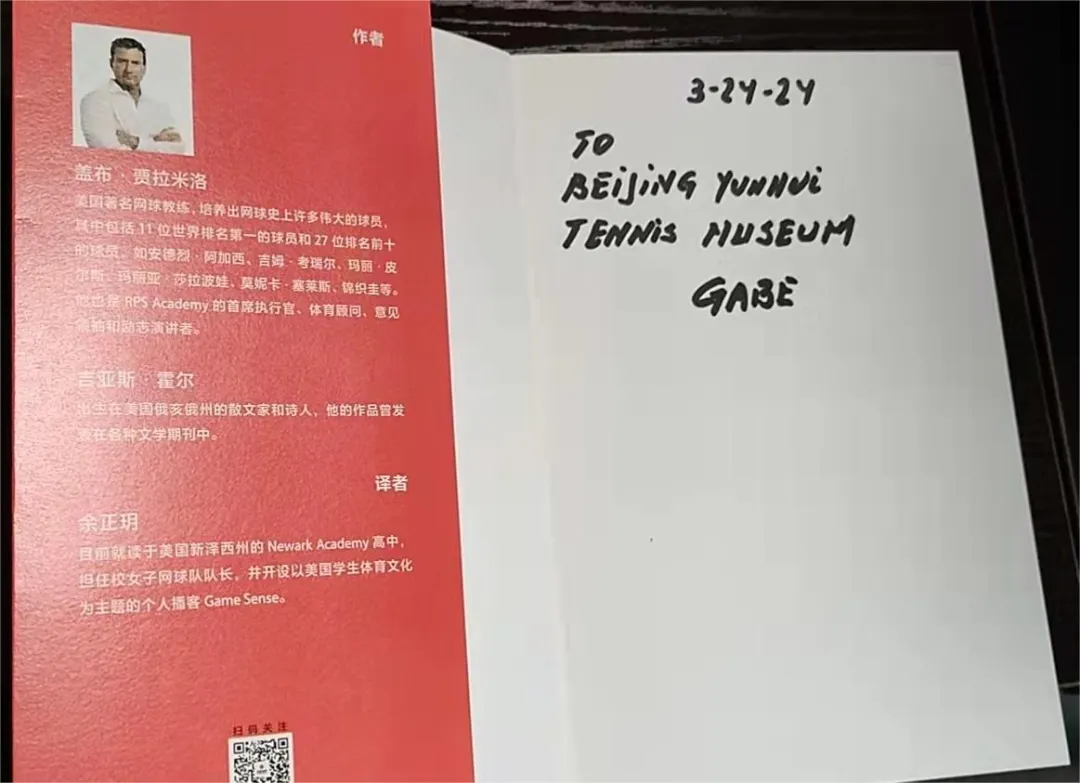 作者
盖布·贾拉米洛
美国著名网球教练，培养出网球史上许多伟大的球员，
其中包括 11 位世界排名第一的球员和 27 位排名前十
的球员，如安德烈·阿加西、吉姆·考瑞尔、玛丽·皮
尔斯、玛丽亚·莎拉波娃、莫妮卡·塞莱斯、锦织圭等。
他也是 RPS Academy 的首席执行官、体育顾问、意见
领袖和励志演讲者。
吉亚斯·霍尔
出生在美国俄亥俄州的散文家和诗人，他的作品曾发
表在各种文学期刊中。
译者
余正玥
目前就读于美国新泽西州的 Newark Academy 高中，
担任校女子网球队队长，并开设以美国学生体育文化
为主题的个人播客 Game Sense。
扫码关注
3-24-24
TO
BEIJING YUNHUI
TENNIS MUSEUM
GABE